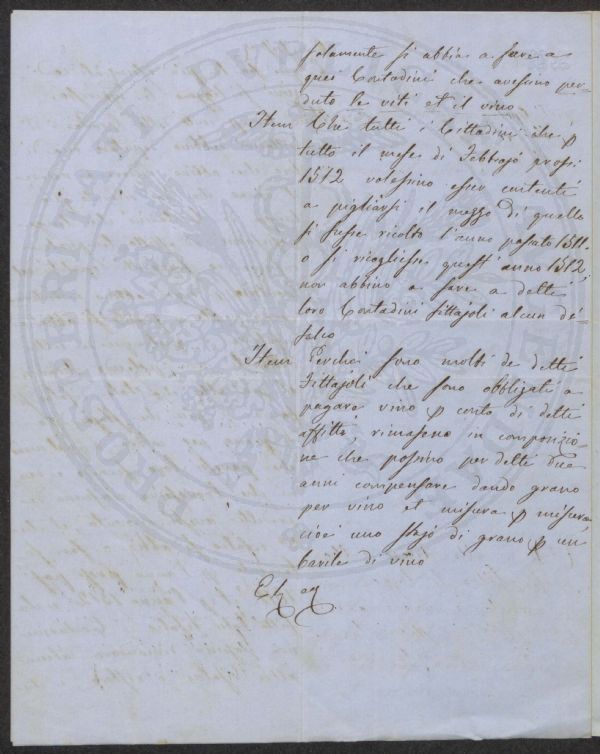 solamente si abbia a fare a
quei Contadini che avessino per-
duto le viti et il vino
Item Che tutti i Cittadini che p
tutto il mese di Febbrajo pross:
1512 volessino esser contenti
a pigliarsi il mezzo di quello
si fusse ricolto l'anno passato 1511.
o si ricogliesse quest'anno 1512,
non abbino a fare a detti
loro Contadini fittajoli alcun di-
falco
Item Perchei sono molti de detti
Fittajoli che sono obbligati a
pagare vino p conto di detti
affitti, rimasono in composizio-
ne che possino per detti due
anni compensare dando grano
per vino et misura p misura
cioè uno stajo di grano p un
barile di vino